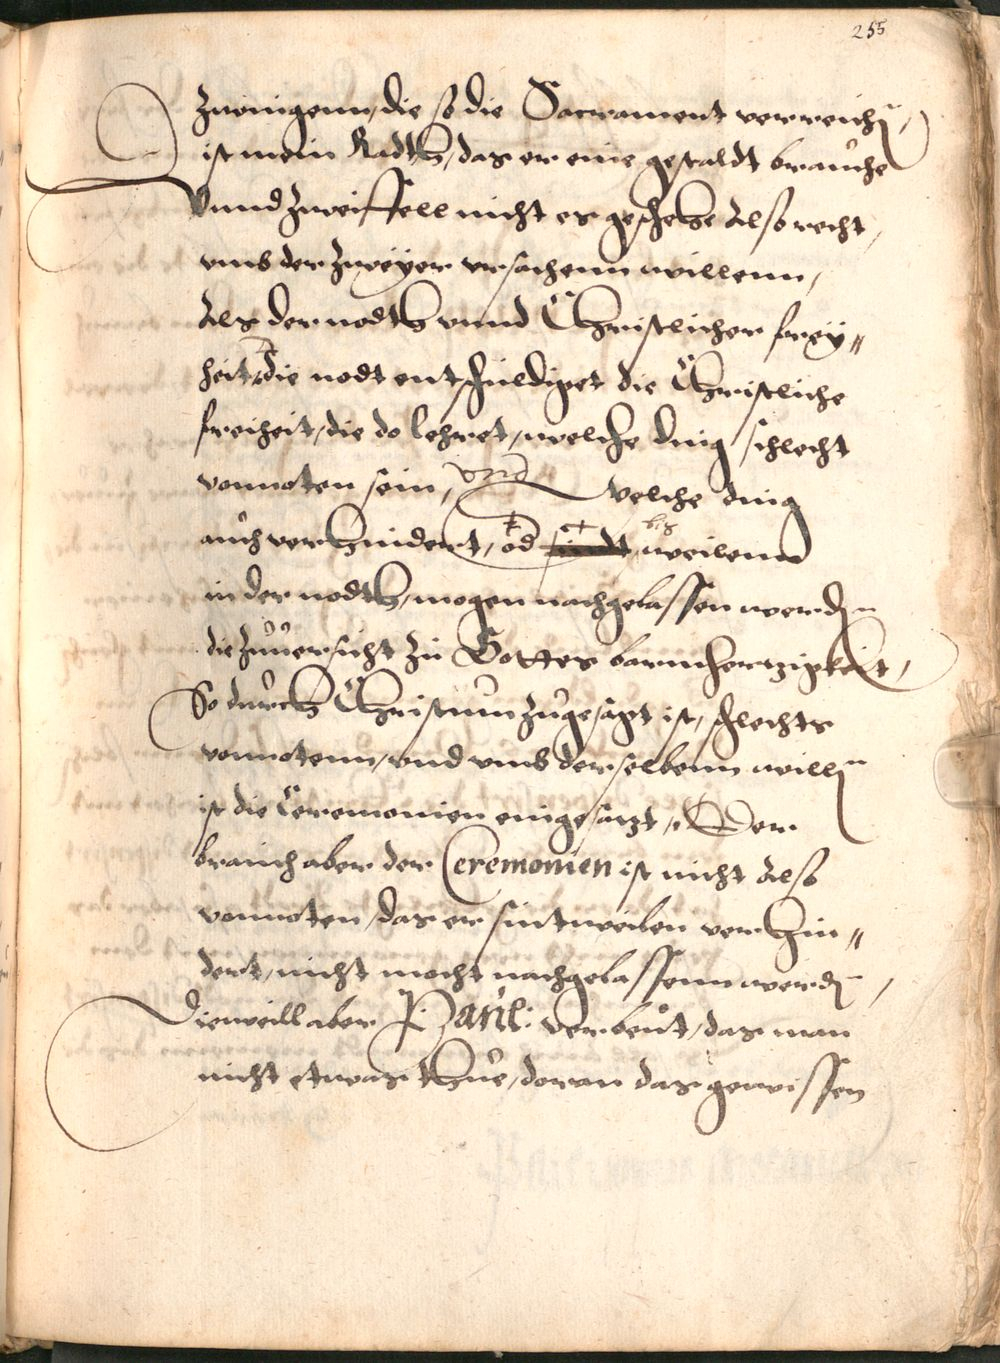 255
zwingenn, die so die Sacrament verreich,
ist mein Radth, das er eine gestaldt brauche
Vnnd zweiffell nicht es geschehe Also recht,
vmb der zweÿer vrsachenn willenn,
Als der nodth vnnd Christlicher freÿ„
heit, die nodt entschuldiget die Christliche
freiheit, die do lehret, welche ding schlecht
vonnoten sein, vnd welche ding
auch verhindert, od sindt bis weilenn
in der nodth, mogen nachgelassen werden
die zuuersicht zu Gottes barmhertzigkeit,
So durch Christum zugesagt ist, schlechts
vonnotenn, vnd vmb derselbenn willen
ist die Ceremonien eingesatzt, Der
brauch aber der Ceremonien ist nicht Also
vonnoten, das er sintweilen verhin„
dert, nicht mocht nachgelassenn werd,
Dieweill aber Paul: verbeut, das man
nicht etwas thue, doran das gewissen